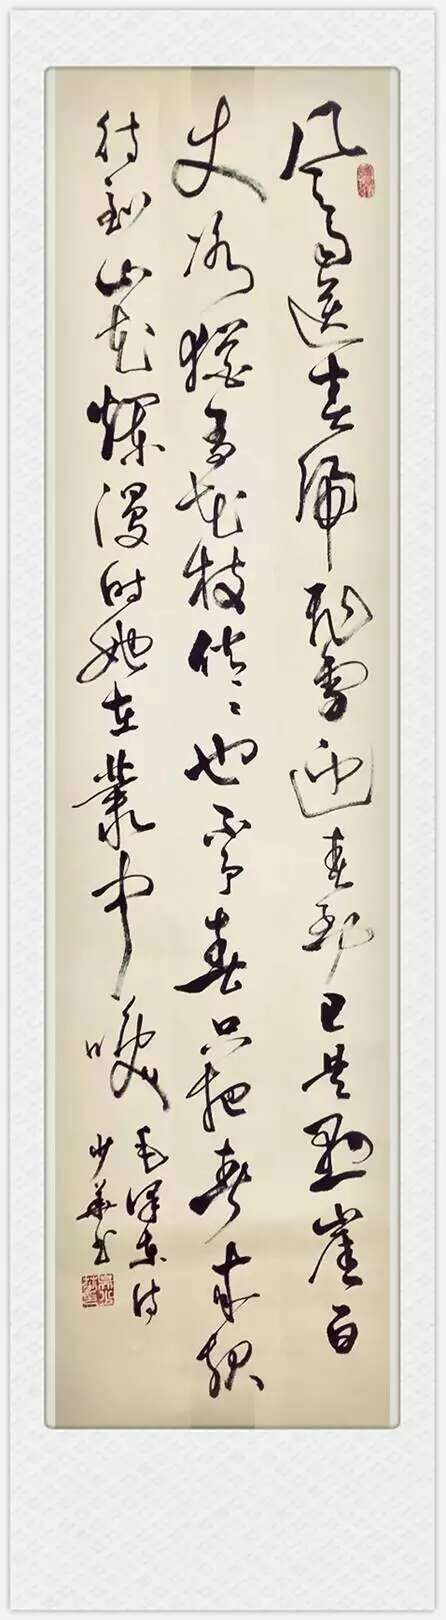 风雨送春歸飛雪迎春到已是懸崖百
丈冰猶有花枝俏〻也不争春只把春来报
待到山花爛漫时她在叢中咲
毛泽东诗
少華书